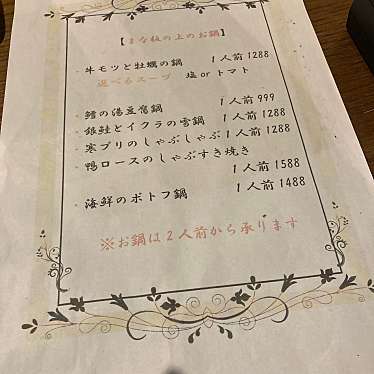 【まな板の上のお鍋】
・牛モツと牡蠣の鍋 1人前1288
選べるスープ 塩orトマト
・鱈の湯豆腐鍋 1人前999
・銀鮭とイクラの雪鍋 1人前1288
・寒ブリのしゃぶしゃぶ 1人前1288
・鴨ロースのしゃぶすき焼き
1人前1588
・海鮮のポトフ鍋 1人前1488
※お鍋は2人前から承ります